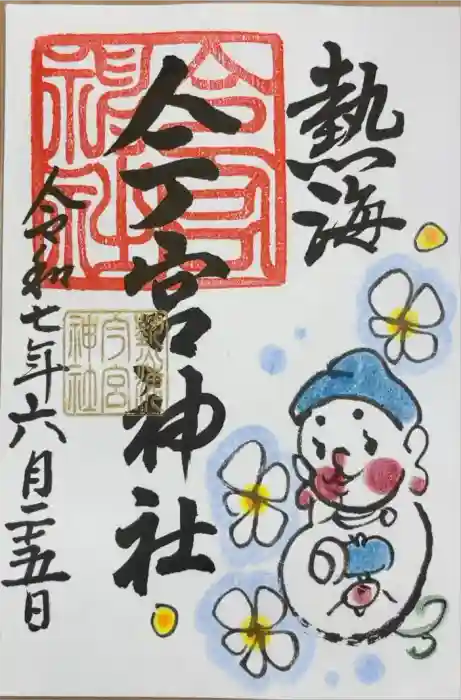 熱海
今宮神社
令和七年六月二五日
今宮神社
熱海
今宮
神社